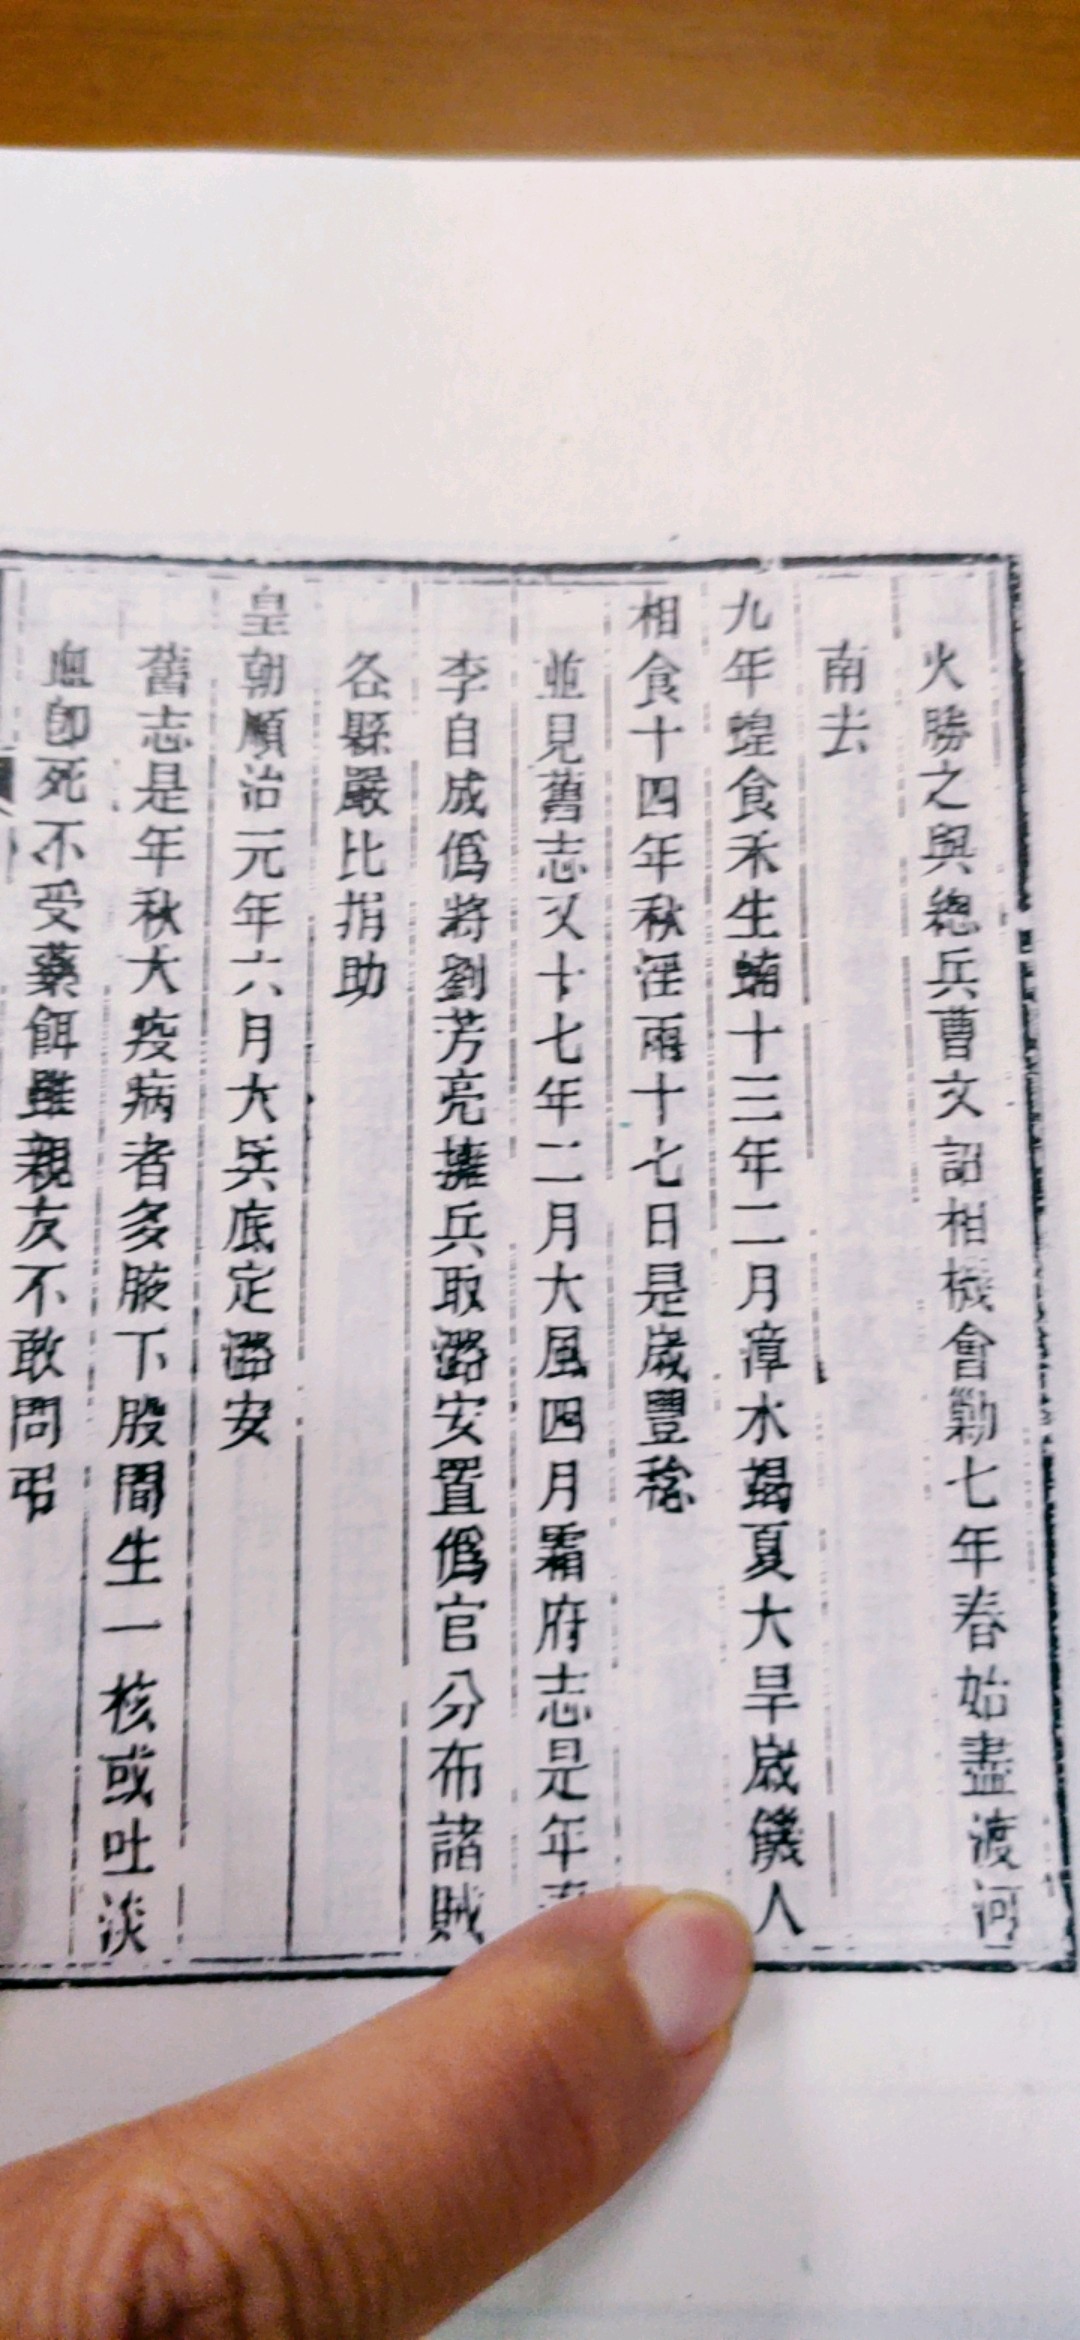 火勝之與總兵曹文詔相機會勦七年春始盡渡河
南去
九年蝗食禾生蝻十三年二月漳水竭夏大旱歲饑人
相食十四年秋淫雨十七日是歲豐稔
並見舊志又十七年二月大風四月霜府志是年
李自成僞將劉芳亮擁兵取潞安置僞官分布諸賊
各縣嚴比捐助
皇朝順治元年六月大兵底定潞安
舊志是年秋大疫病者多腋下股間生一核或吐淡
血卽死不受藥餌雖親友不敢問弔